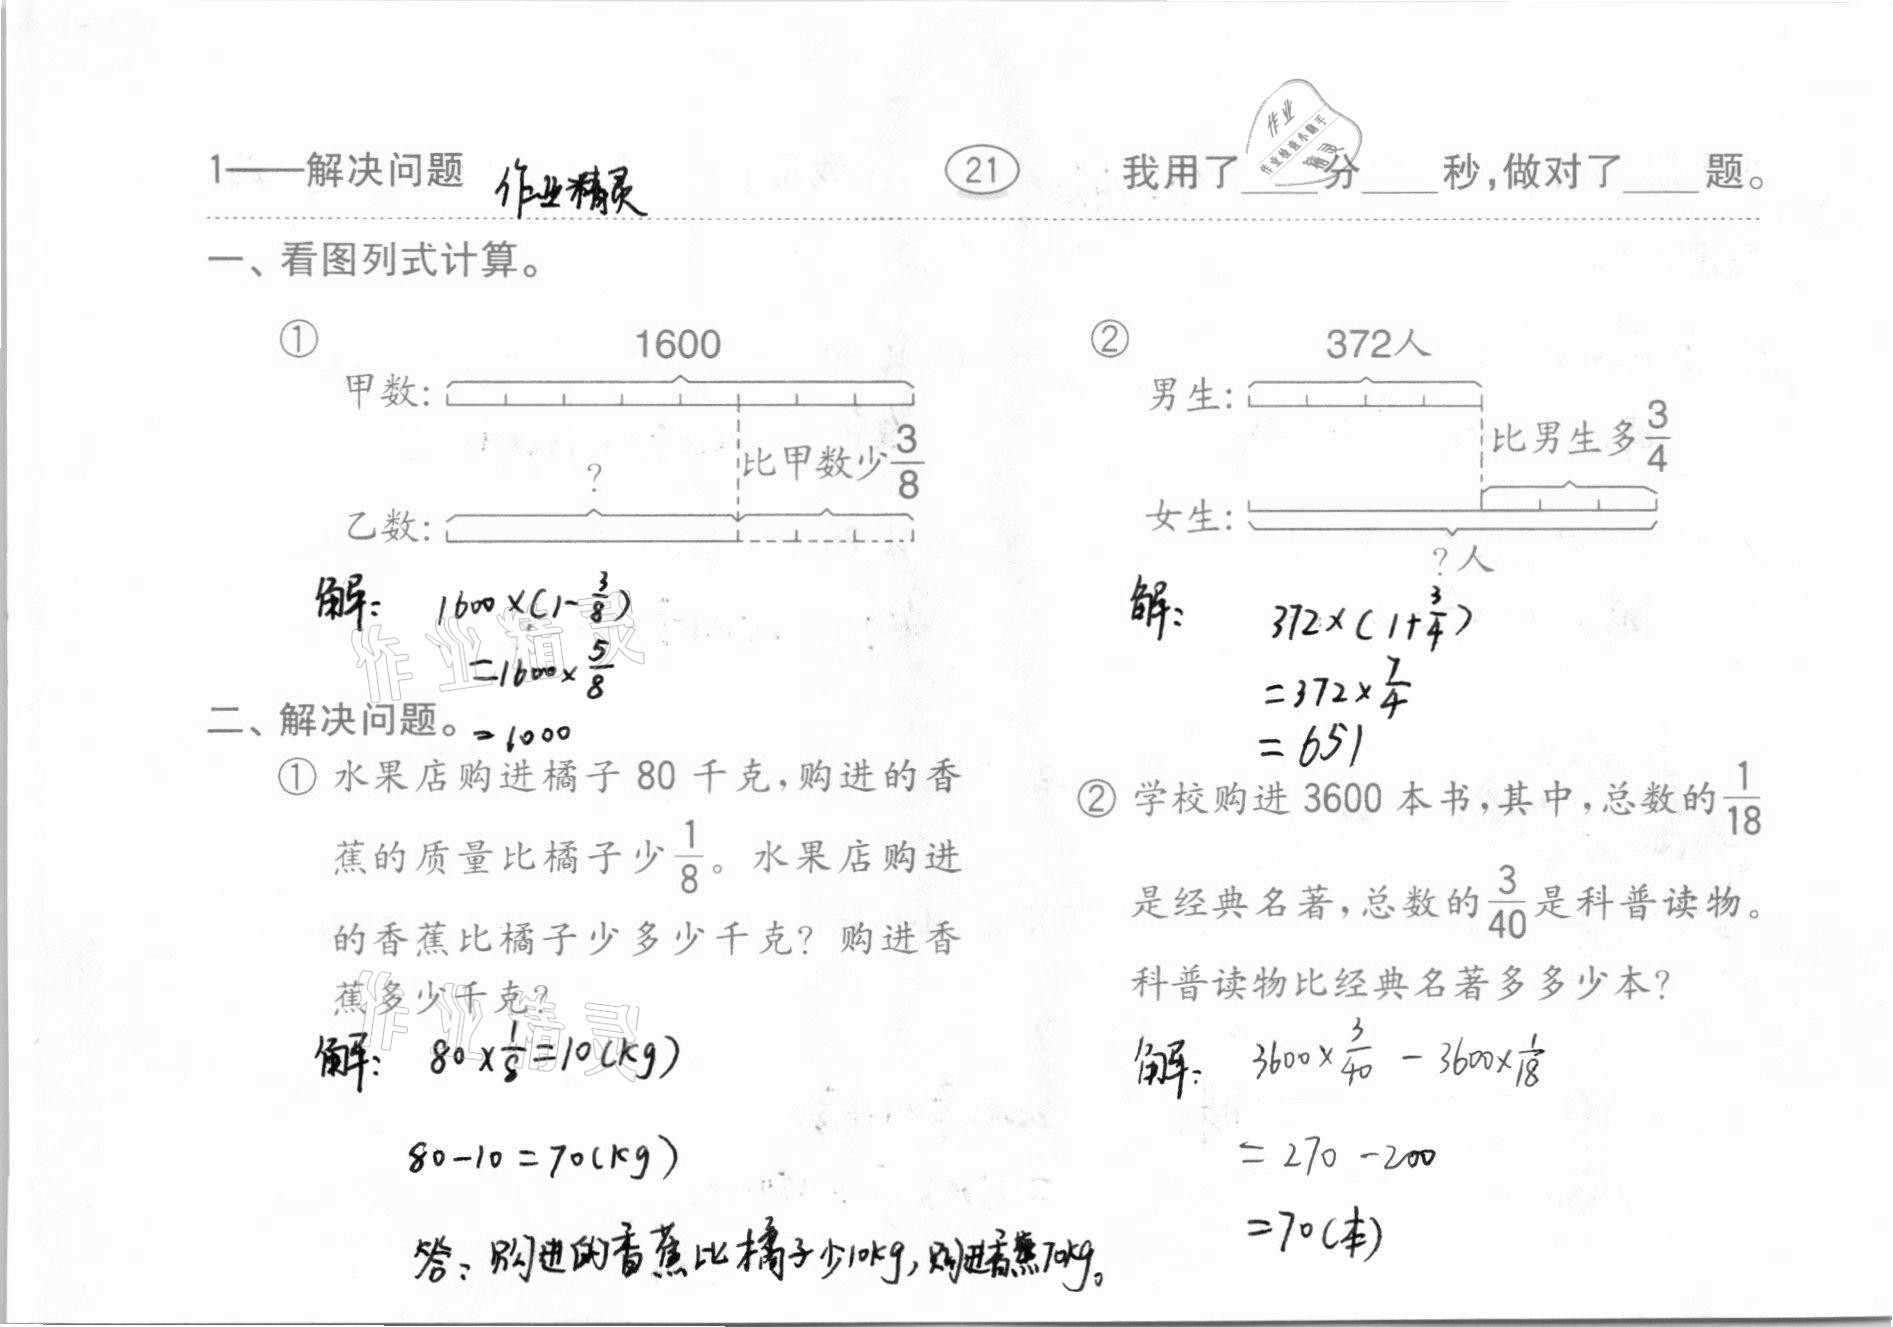 1——解决问题 作业精灵 21 我用了____分____秒,做对了____题。
作业
作业检查小助手
精灵
一、看图列式计算。
① 1600
甲数:
比甲数少3/8
?
乙数:
解: 1600×(1-3/8)
=1600×5/8
=1000
② 372人
男生:
比男生多3/4
女生:
?人
解: 372×(1+3/4)
=372×7/4
=651
作业精灵
二、解决问题。
① 水果店购进橘子 80 千克,购进的香
蕉的质量比橘子少1/8。水果店购进
的香蕉比橘子少多少千克?购进香
蕉多少千克?
作业精灵
解: 80×1/8=10(kg)
80-10=70(kg)
答:购进的香蕉比橘子少10kg,购进香蕉70kg。
② 学校购进 3600 本书,其中,总数的1/18
是经典名著,总数的3/40是科普读物。
科普读物比经典名著多多少本?
解: 3600×3/40-3600×1/18
=270-200
=70(本)